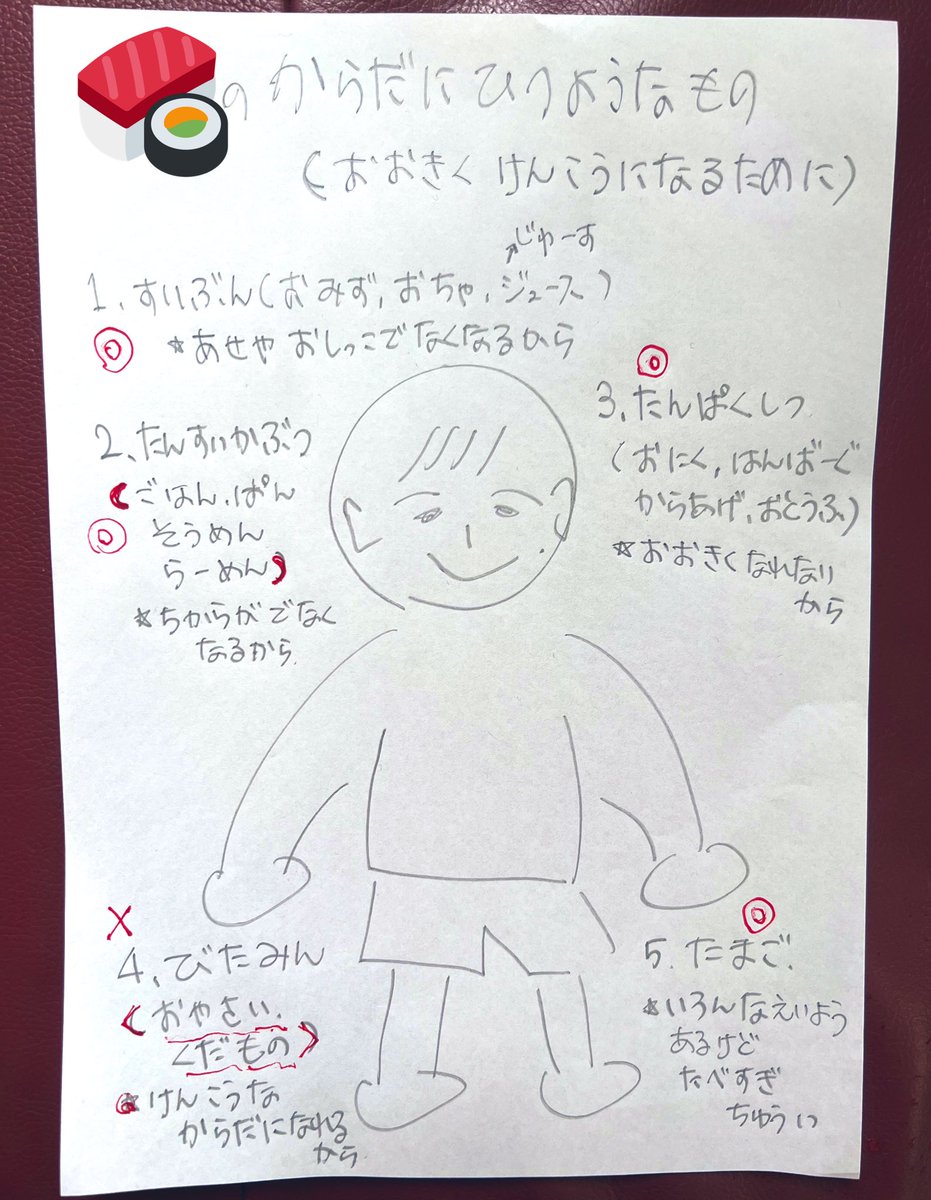 の からだにひつようなもの
(おおきく けんこうになるために)
じゅーす
1、すいぶん(おみず、おちゃ、ジュース)
☆あせや おしっこでなくなるから
2、たんすいかぶつ
(ごはん、ぱん
そうめん
らーめん)
☆ちからがでなく
なるから
3、たんぱくしつ
(おにく、はんばーぐ
からあげ、おとうふ)
☆おおきくなれない
から
4、びたみん
(おやさい、
くだもの)
☆けんこうな
からだになれる
から
5、たまご、
☆いろんなえいよう
あるけど
たべすぎ
ちゅうい